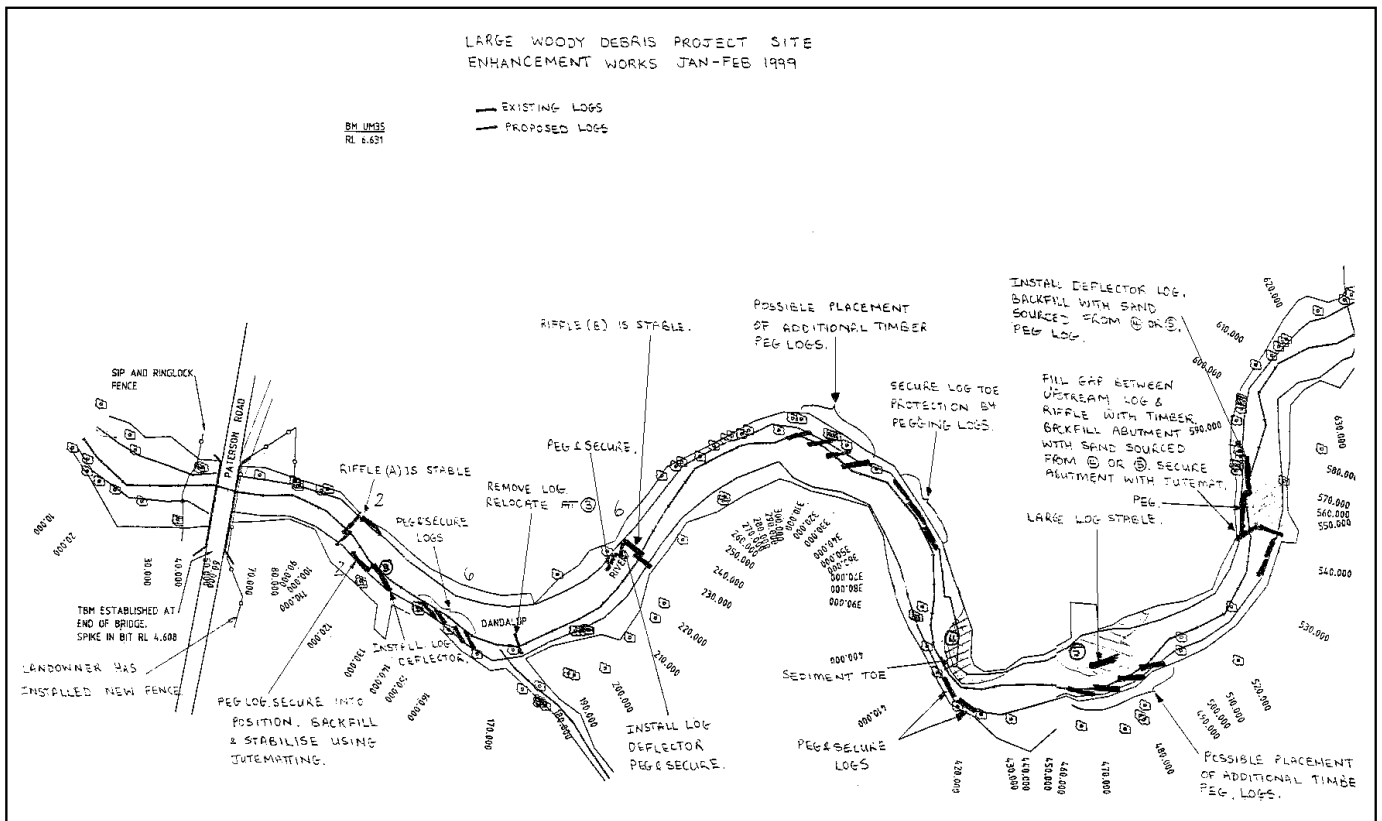 LARGE WOODY DEBRIS PROJECT SITE
ENHANCEMENT WORKS JAN-FEB 1999
EXISTING LOGS
PROPOSED LOGS
BM UM35
RL 6.631
SIP AND RINGLOCK
FENCE
PATERSON ROAD
RIFFLE (A) IS STABLE
2
PEG & SECURE
LOGS
REMOVE LOG
RELOCATE AT
6
PEG & SECURE.
6
RIFFLE (B) IS STABLE.
POSSIBLE PLACEMENT
OF ADDITIONAL TIMBER
PEG LOGS.
SECURE LOG TOE
PROTECTION BY
PEGGING LOGS.
INSTALL DEFLECTOR LOG.
BACKFILL WITH SAND
SOURCED FROM OR
PEG LOG.
FILL GAP BETWEEN
UPSTREAM LOG &
RIFFLE WITH TIMBER
BACKFILL ABUTMENT
WITH SAND SOURCED
FROM OR SECURE
ABUTMENT WITH JUTEMAT.
PEG.
LARGE LOG STABLE.
DANDALUP
RIVER
2
INSTALL LOG
DEFLECTOR.
TBM ESTABLISHED AT
END OF BRIDGE.
SPIKE IN BIT RL 4.608
LANDOWNER HAS
INSTALLED NEW FENCE
PEG LOG. SECURE INTO
POSITION. BACKFILL
& STABILISE USING
JUTEMATTING.
INSTALL LOG
DEFLECTOR
PEG & SECURE.
SEDIMENT TOE
PEG & SECURE
LOGS
POSSIBLE PLACEMENT
OF ADDITIONAL TIMBE
PEG LOGS.
10.000
20.000
30.000
40.000
70.000
80.000
90.000
100.000
110.000
120.000
130.000
140.000
150.000
160.000
170.000
180.000
190.000
200.000
210.000
220.000
230.000
240.000
250.000
260.000
270.000
280.000
310.000
320.000
330.000
340.000
350.000
370.000
380.000
390.000
400.000
410.000
420.000
430.000
440.000
450.000
460.000
470.000
480.000
490.000
500.000
510.000
520.000
530.000
540.000
550.000
560.000
570.000
580.000
590.000
600.000
610.000
620.000
630.000